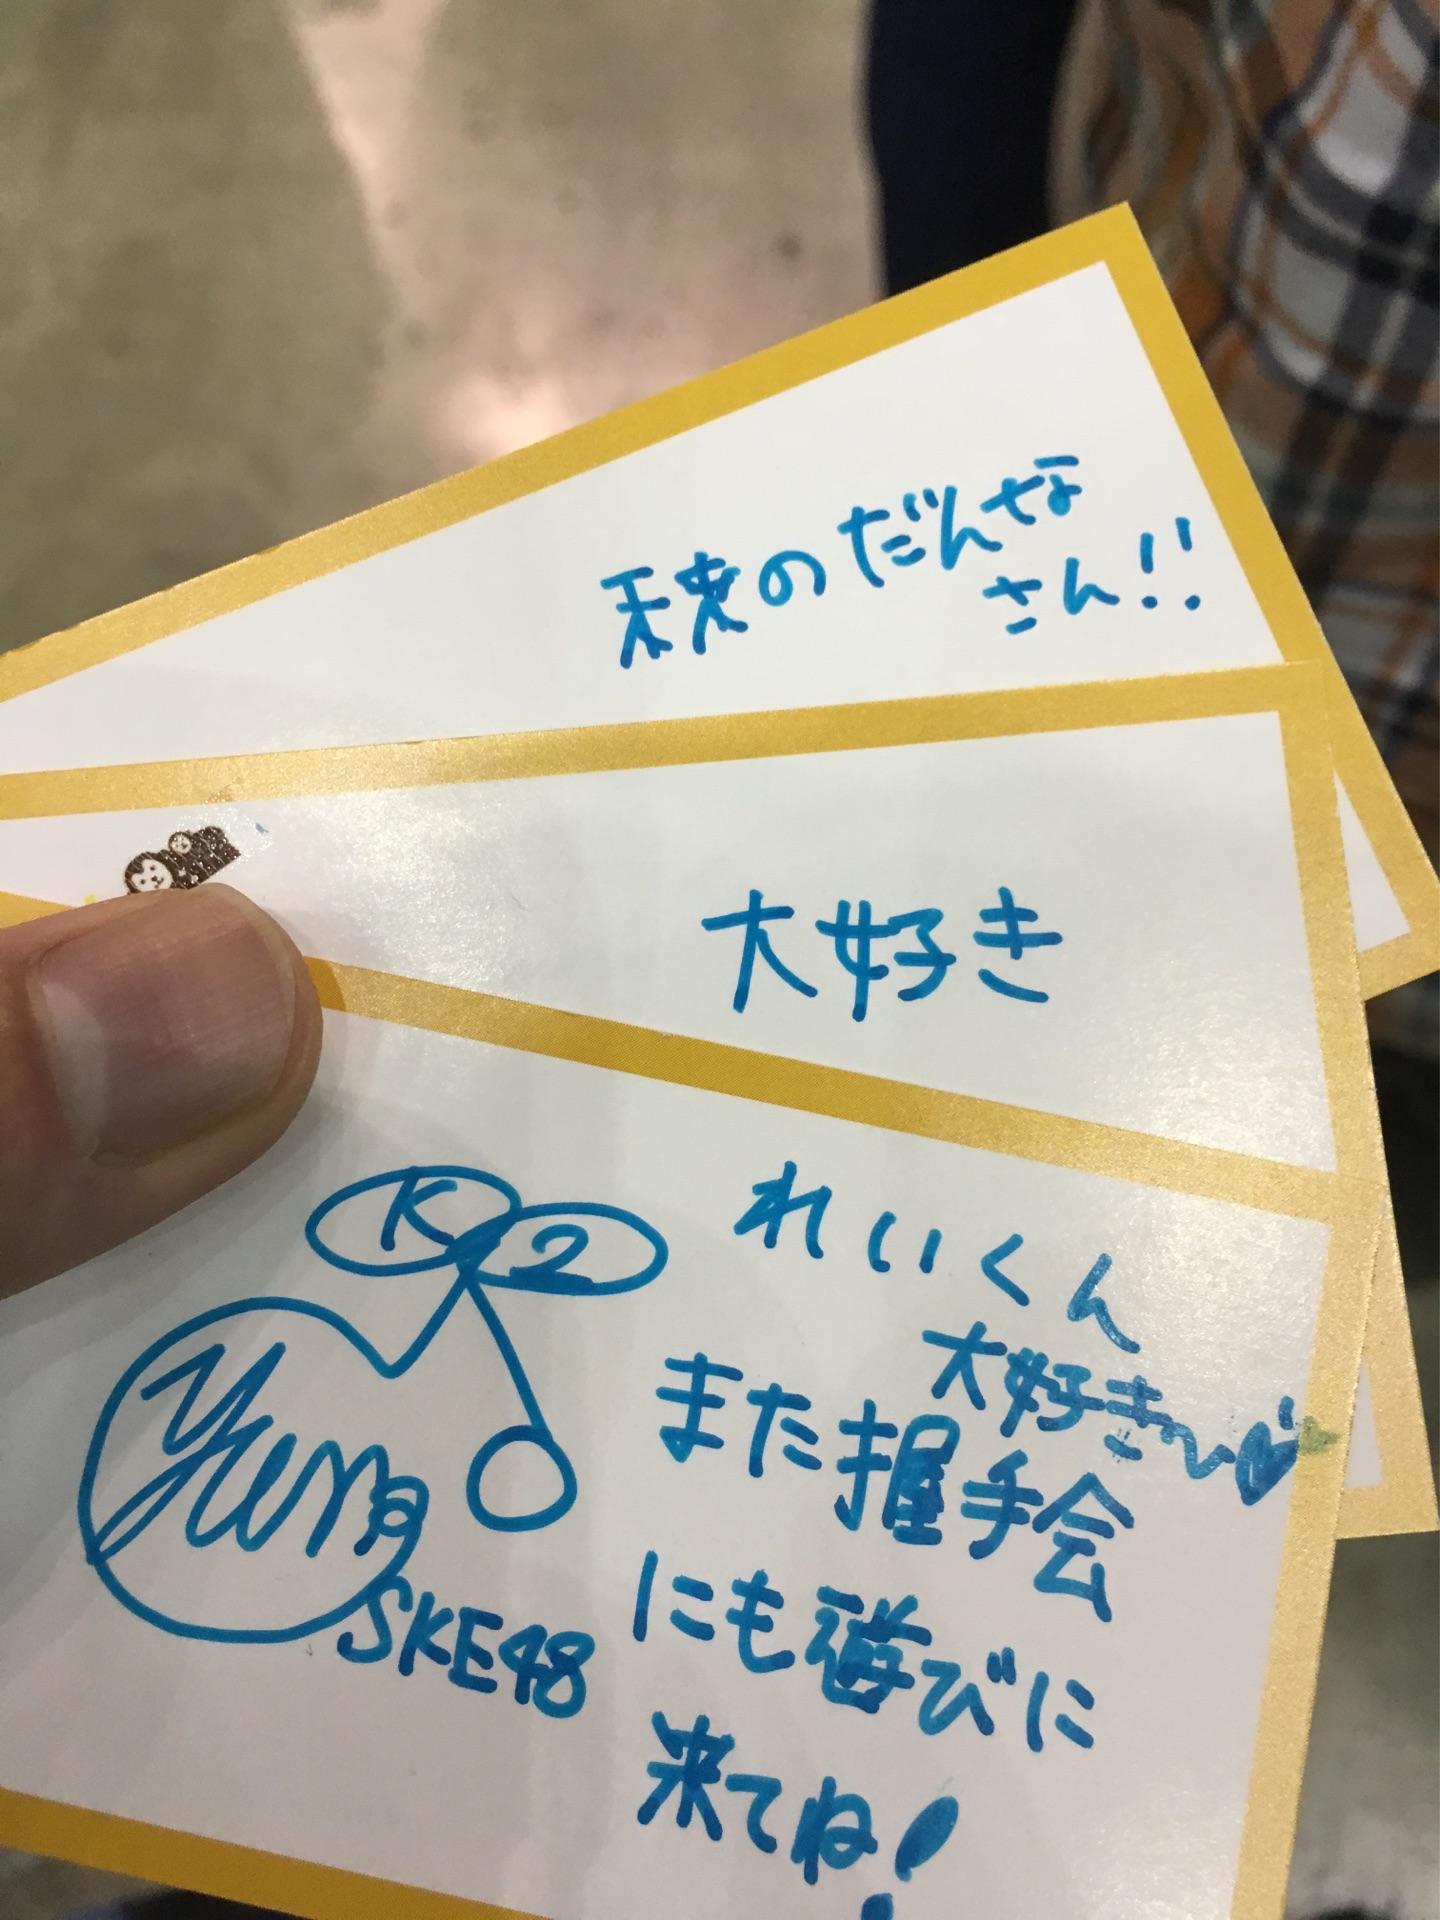 未来のだんな
さん!!
大好き
K2
Yuna
SKE48
れいくん
大好き
また握手会
にも遊びに
来てね!